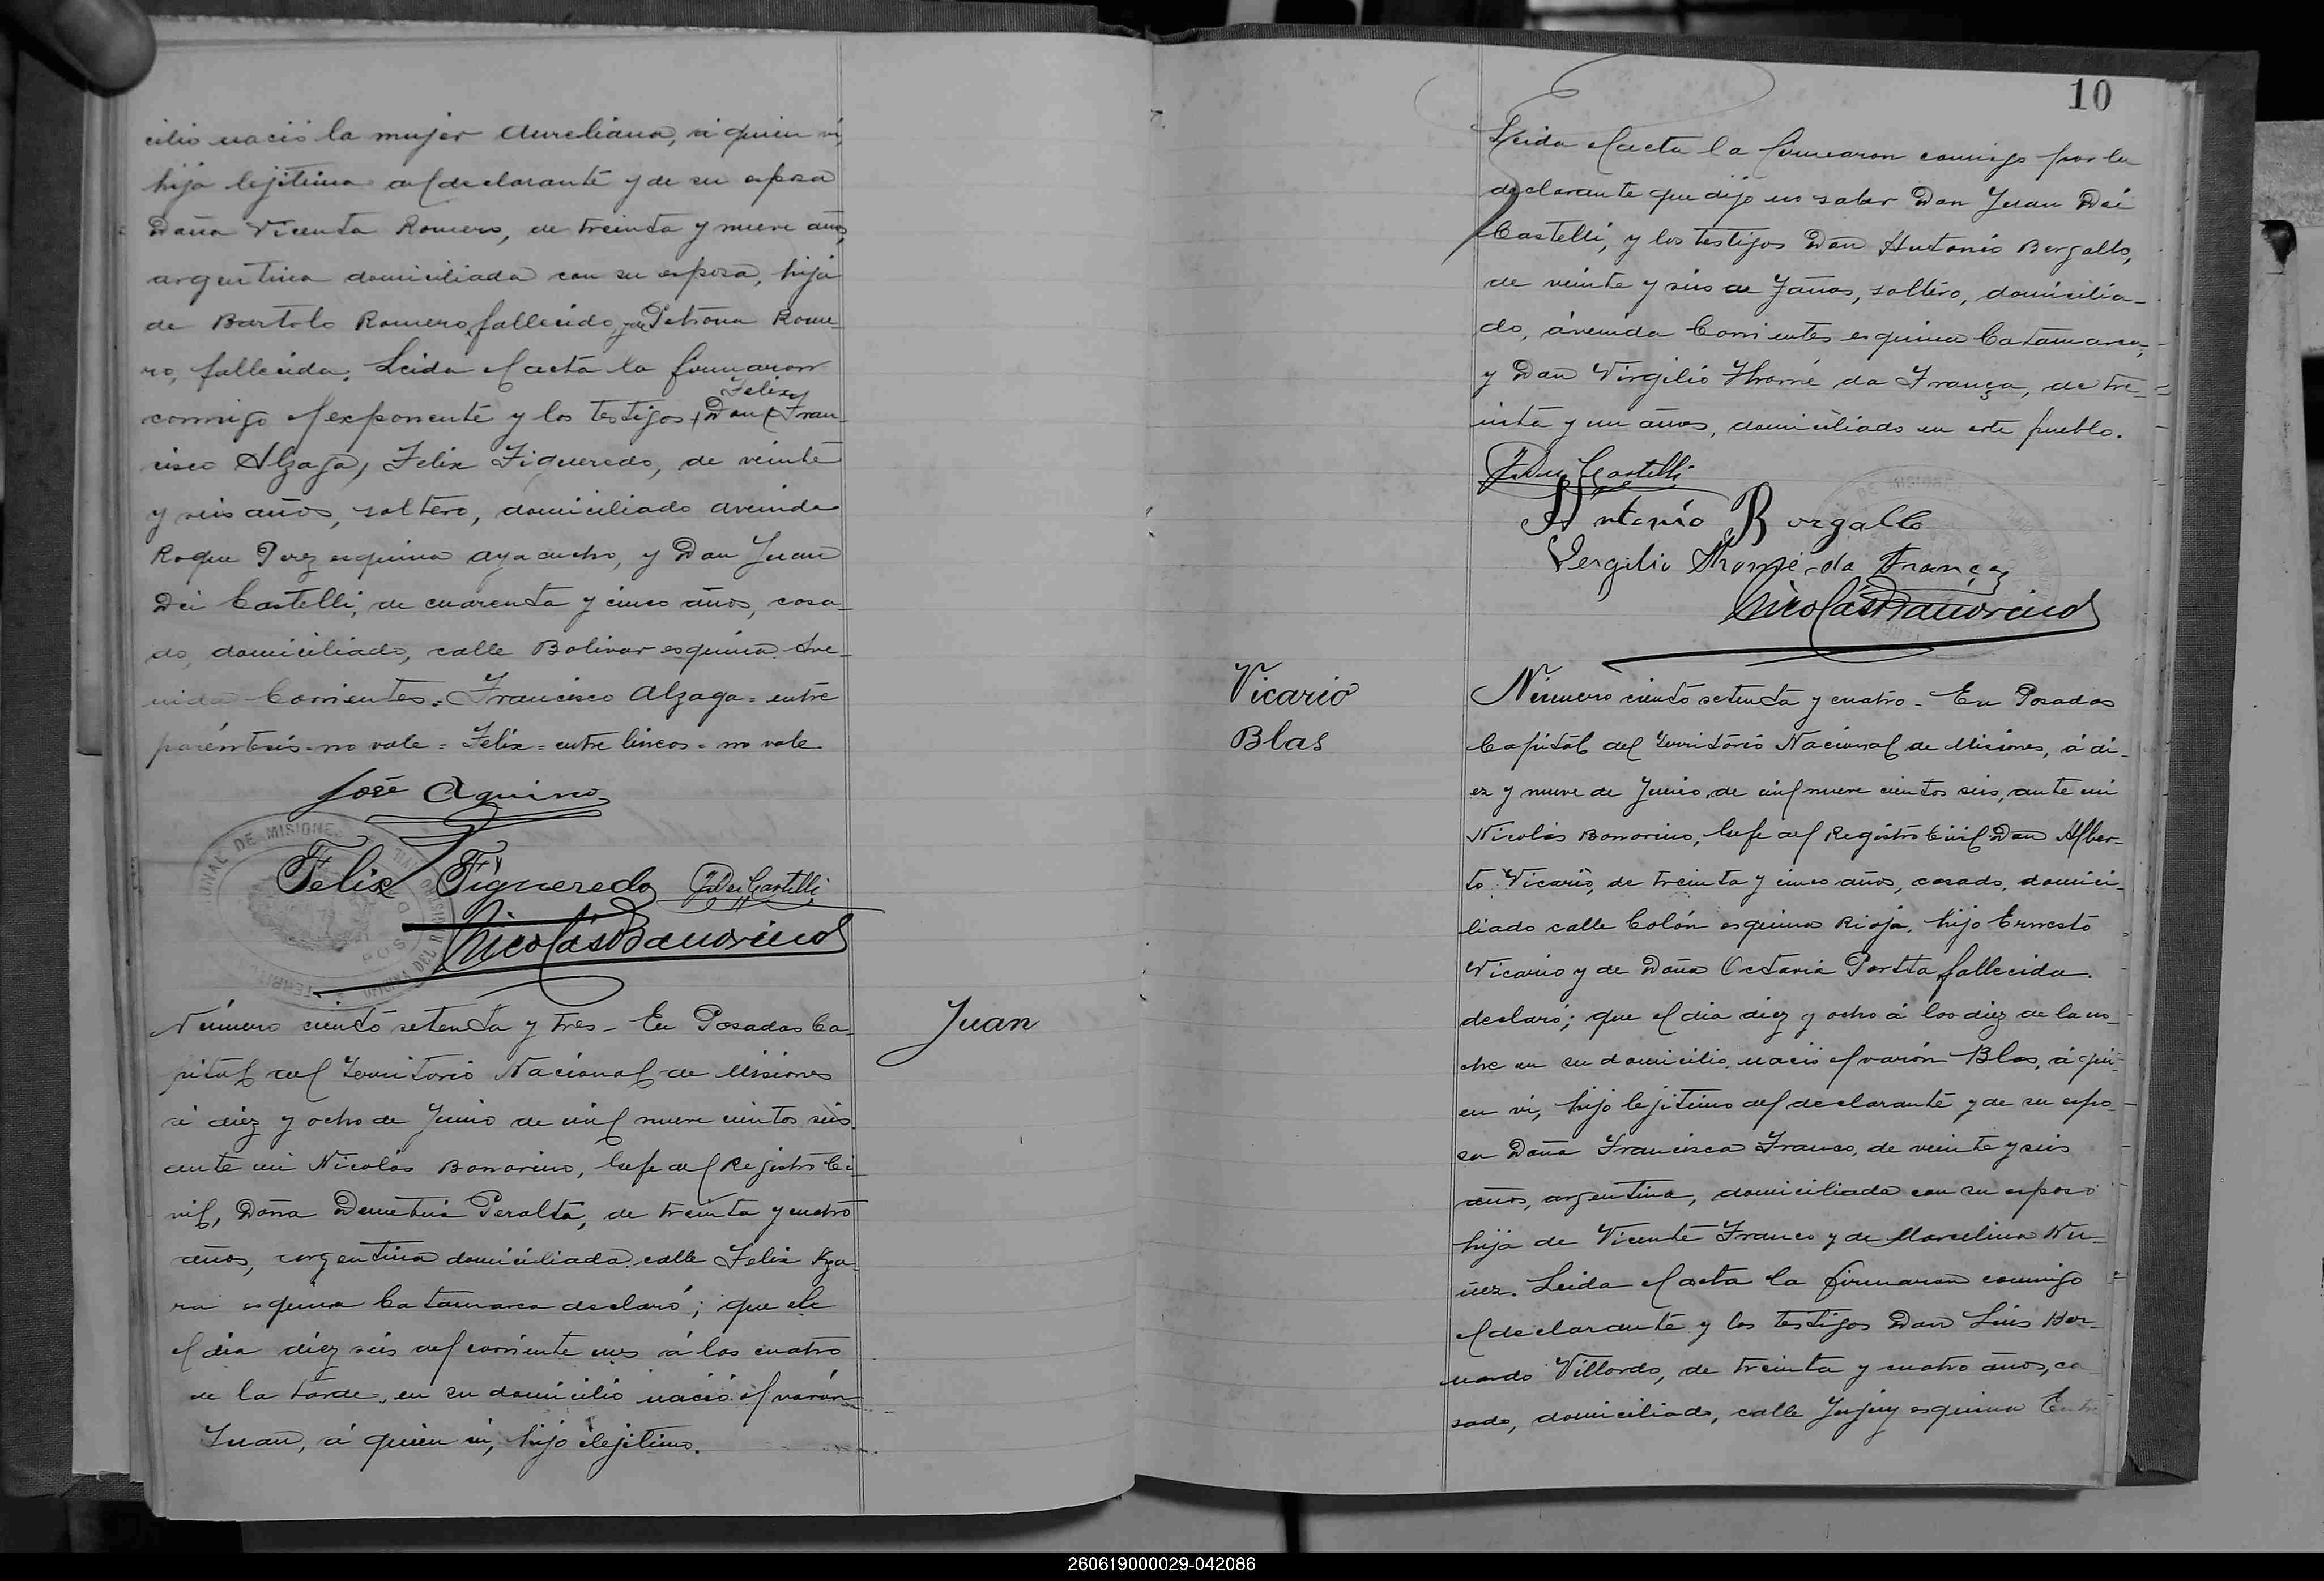 cilio nació la mujer Aureliana, á quien vi,
hija lejitima del declarante y de su esposa
Doña Vicenta Romero, de treinta y nueve años,
argentina domiciliada con su esposo, hija
de Bartolo Romero, fallecido, y de Petrona Rome-
ro, fallecida. Leida el acta la firmaron
Felix
conmigo el exponente y los testigos (Don Fran-
cisco Alzaga) Felix Figueredo, de veinte
y seis años, soltero, domiciliado avenida
Roque Perez esquina ayacucho, y Don Juan
Dei Castelli, de cuarenta y cinco años, casa-
do, domiciliado, calle Bolivar esquina Ave-
nida Corrientes. = Francisco Alzaga = entre
paréntesis - no vale = Felix = entre lineas = no vale.
José Aquino
Felix Figueredo J Dei Castelli
Nicolás Bonorino
Número ciento setenta y tres - En Posadas Ca-
pital del Territorio Nacional de Misiones
á diez y ocho de Junio de mil nueve cientos seis.
ante mi Nicolás Bonorino, Gefe del Registro Ci-
vil, Doña Demetria Peralta, de treinta y cuatro
años, argentina domiciliada calle Felix Aza-
ra esquina Catamarca declaró; que
el dia diez seis del corriente mes á las cuatro
de la tarde, en su domicilio nació el varón
Juan, á quien vi, hijo ilejitimo.
Juan
10
Leida el acta la firmaron conmigo por la
declarante que dijo no saber Don Juan Dei
Castelli, y los testigos Don Antonio Bergallo,
de veinte y seis años, soltero, domicilia-
do, ávenida Corrientes esquina Catamarca,
y Don Virgilio Thomé da França, de tre-
inta y un años, domiciliado en este pueblo.
J Dei Castelli
Antonio Borgallo
Vergilio Thomé da França
Nicolás Bonorino
Vicario
Blas
Número ciento setenta y cuatro - En Posadas
Capital del Territorio Nacional de Misiones, á di-
ez y nueve de Junio de mil nueve cientos seis, ante mi
Nicolás Bonorino, Gefe del Registro Civil Don Alber-
to Vicario, de treinta y cinco años, casado, domici-
liado calle Colón esquina Rioja, hijo Ernesto
Vicario y de Doña Octavia Portta, fallecida.
declaró; que el dia diez y ocho á las diez de la no-
che en su domicilio, nació el varón Blas, á qui-
en vi, hijo lejitimo del declarante y de su espo-
sa Doña Francisca Franco, de veinte y seis
años, argentina, domiciliada con su esposo
hija de Vicente Franco y de Marcelina Nu-
ñez. Leida el acta la firmaron conmigo
el declarante y los testigos Don Luis Ber-
nardo Villordo, de treinta y cuatro años, ca-
sado, domiciliado, calle Jujuy esquina Entre
260619000029-042086